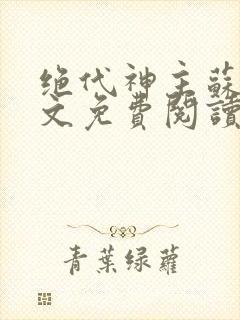 绝代神主蘇
文免費閱讀
青葉绿蘿